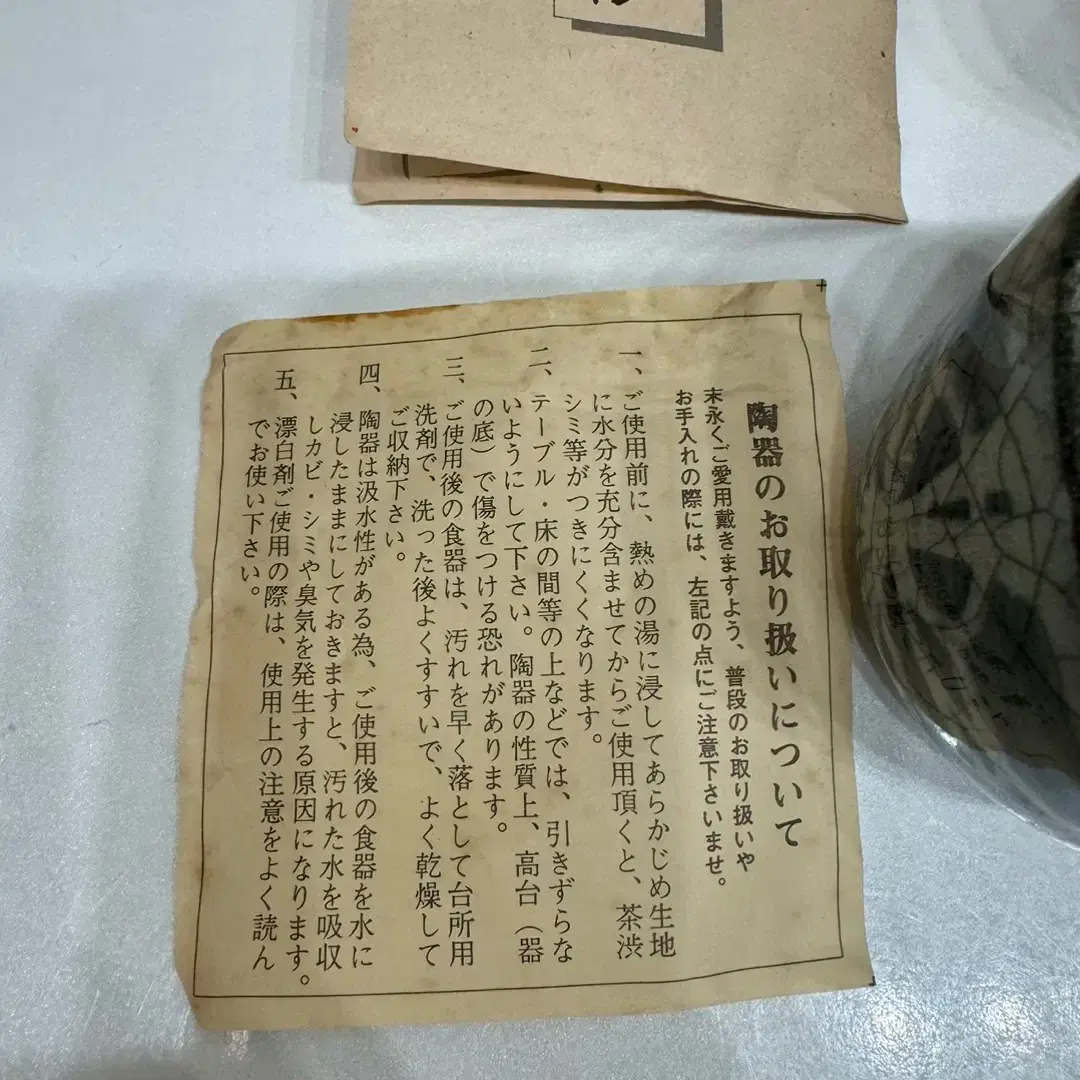 陶器のお取り扱いについて
末永くご愛用戴きますよう、普段のお取り扱いや
お手入れの際には、左記の点にご注意下さいませ。
一、ご使用前に、熱めの湯に浸してあらかじめ生地
に水分を充分含ませてからご使用頂くと、茶渋
シミ等がつきにくくなります。
二、テーブル・床の間等の上などでは、引きずらな
いようにして下さい。陶器の性質上、高台（器
の底）で傷をつける恐れがあります。
三、ご使用後の食器は、汚れを早く落として台所用
洗剤で、洗った後よくすすいで、よく乾燥して
ご収納下さい。
四、陶器は汲水性がある為、ご使用後の食器を水に
浸したままにしておきますと、汚れた水を吸収
しカビ・シミや臭気を発生する原因になります。
五、漂白剤ご使用の際は、使用上の注意をよく読ん
でお使い下さい。